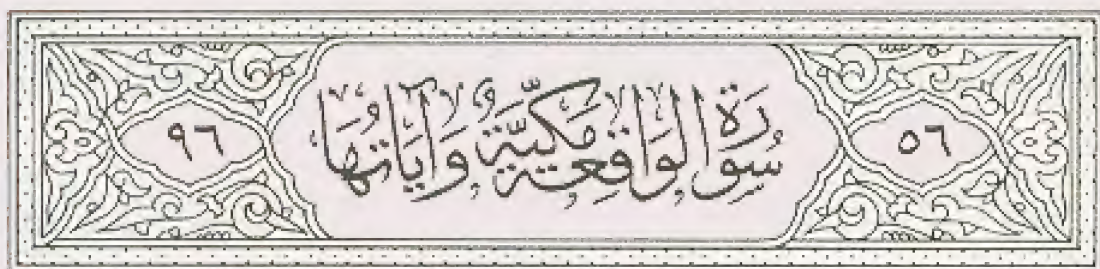 ٥٦ سُورَةُ الْوَاقِعَةِ مَكِّيَّةٌ وَآيَاتُهَا ٩٦